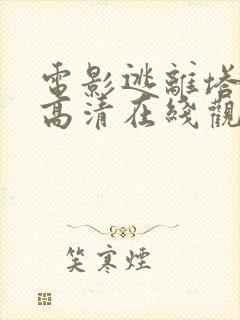 電影逃離塔
高清在綫觀
笑寒煙